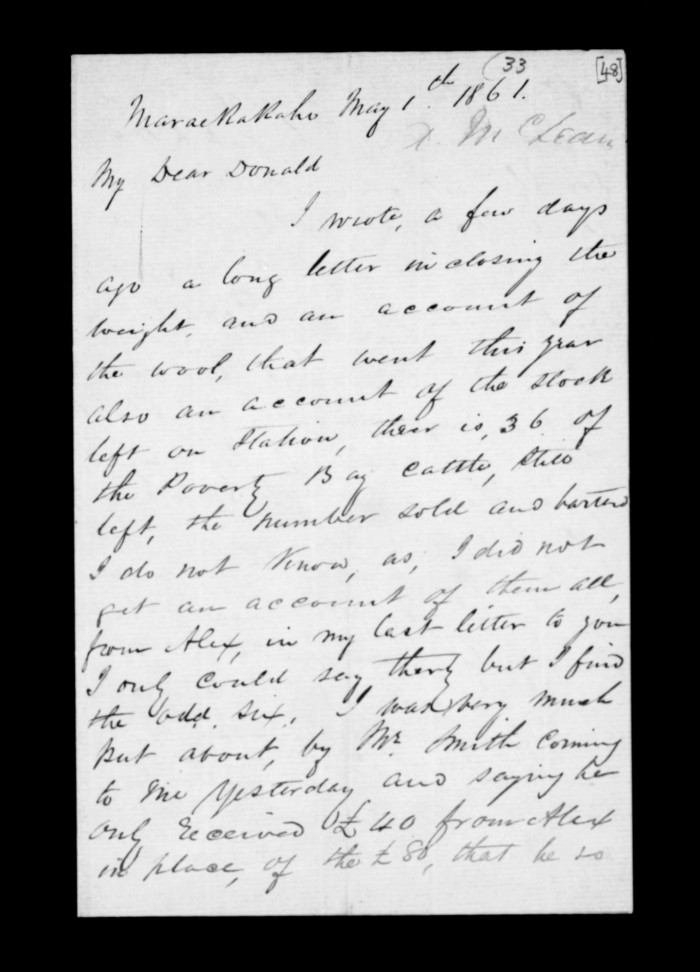 (33
[48]
Maraekakaho May 1.th 1861.
McLean
My Dear Donald
I wrote, a few days
ago a long letter inclosing the
weight, and an account of
the wool, that went this year
also an account of the stock
left on Station, theer is, 36 of
the Poverty Bay cattle, still
left, the number sold and barterd
I do not know, as, I did not
get an account of them all,
from Alex, in my last letter to you
I only could say therty but I find
the odd six, I was very much
put about, by Mr Smith coming
to me yesterday and saying he
only received £40 from Alex
in place, of the £80, that he so